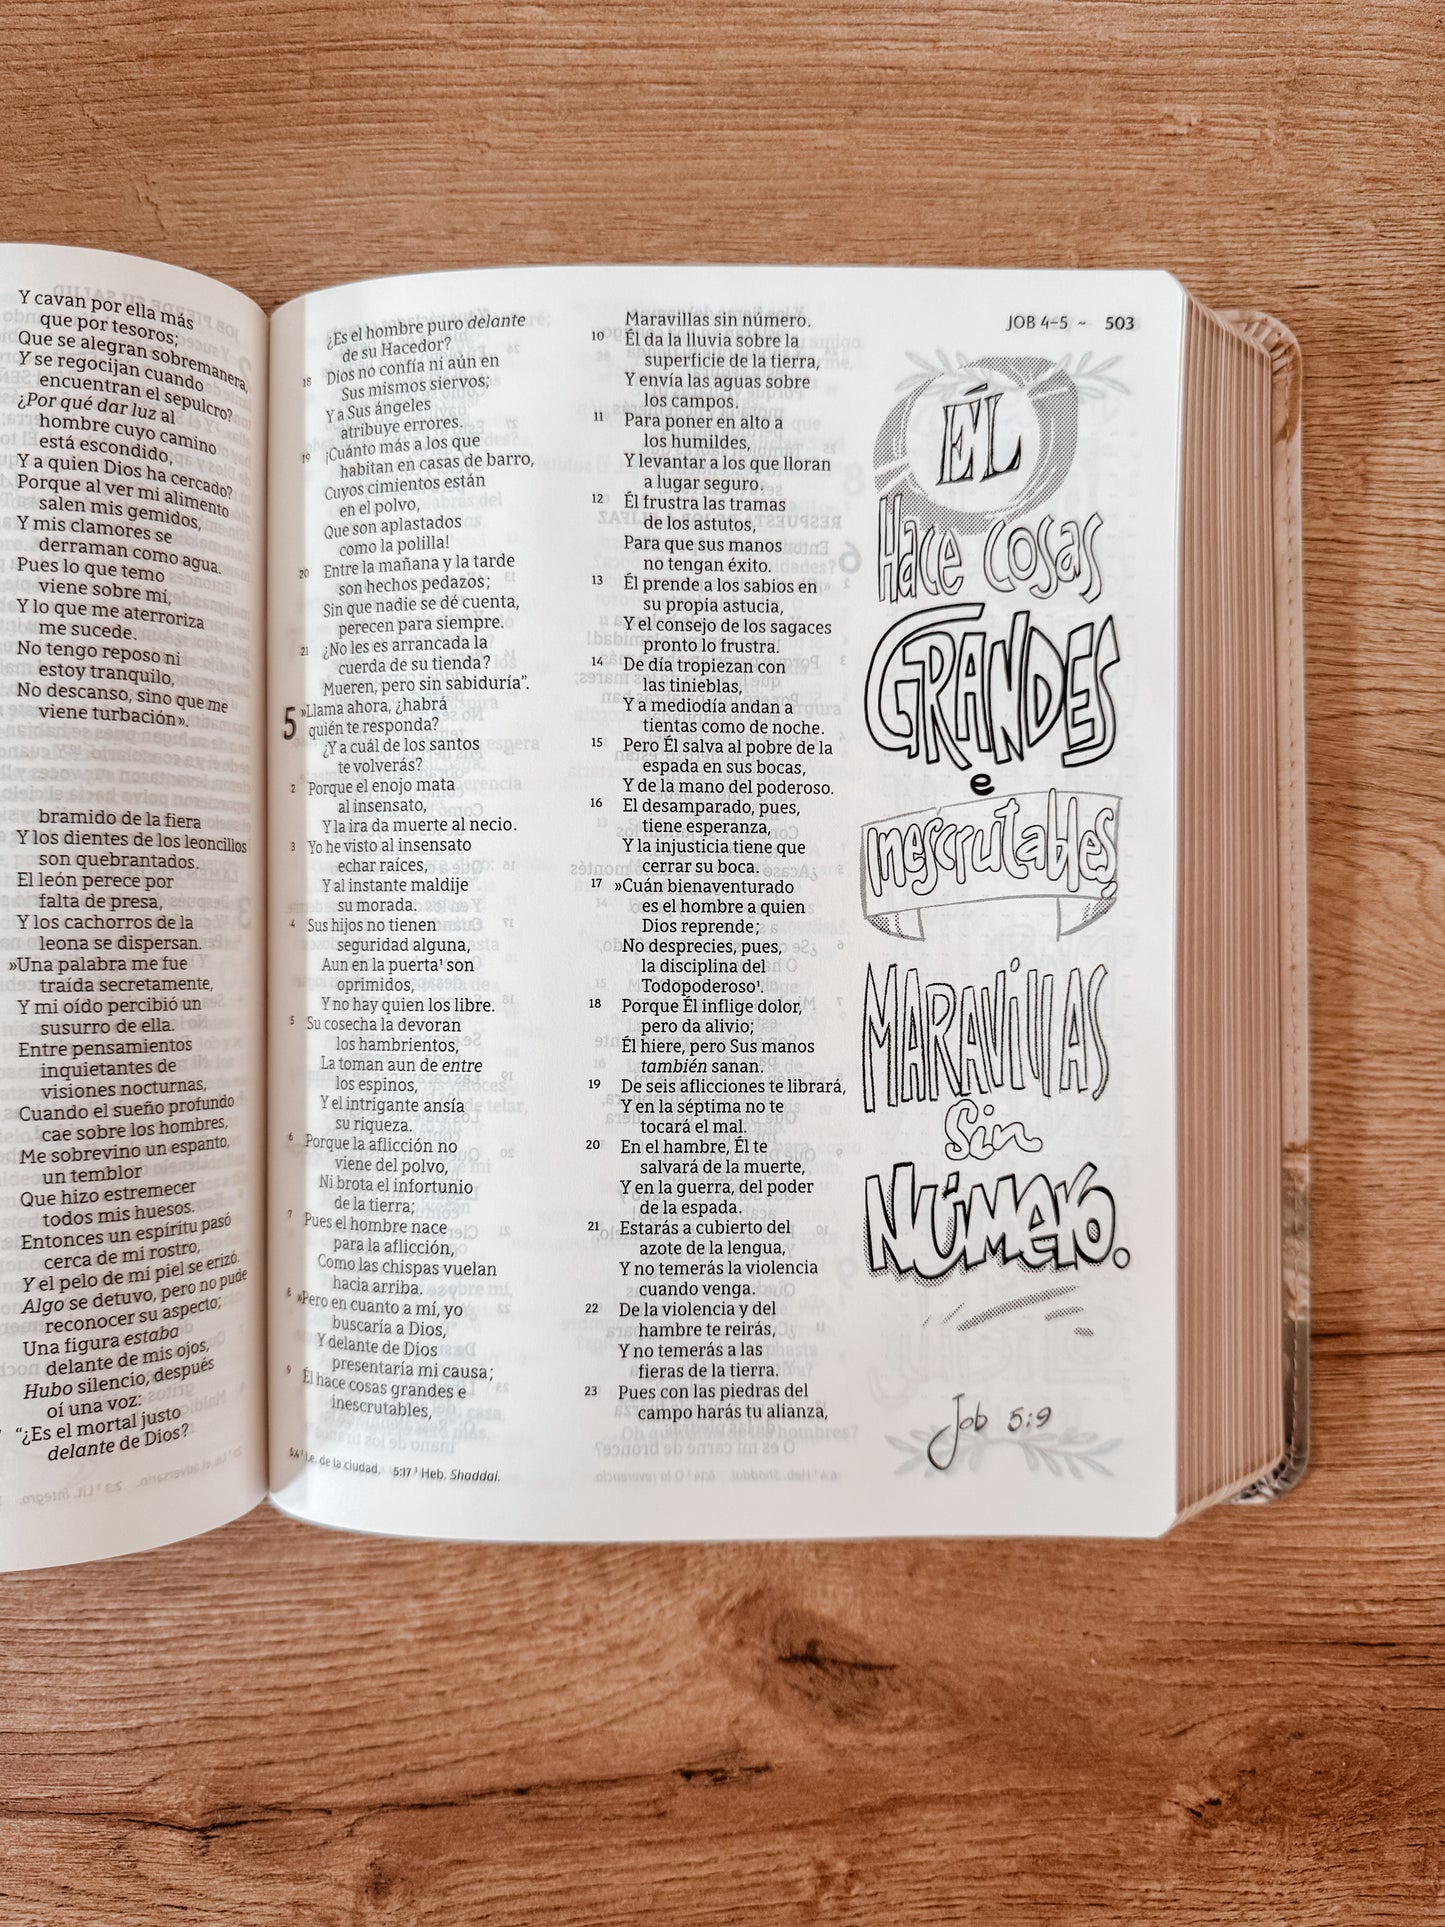 Y cavan por ella más
que por tesoros;
Que se alegran sobremanera,
Y se regocijan cuando
encuentran el sepulcro?
¿Por qué dar luz al
hombre cuyo camino
está escondido,
Y a quien Dios ha cercado?
Porque al ver mi alimento
salen mis gemidos,
Y mis clamores se
derraman como agua.
Pues lo que temo
viene sobre mí,
Y lo que me aterroriza
me sucede.
No tengo reposo ni
estoy tranquilo,
No descanso, sino que me
viene turbación».
bramido de la fiera
Y los dientes de los leoncillos
son quebrantados.
El león perece por
falta de presa,
Y los cachorros de la
leona se dispersan.
»Una palabra me fue
traída secretamente,
Y mi oído percibió un
susurro de ella.
Entre pensamientos
inquietantes de
visiones nocturnas,
Cuando el sueño profundo
cae sobre los hombres,
Me sobrevino un espanto,
un temblor
Que hizo estremecer
todos mis huesos.
Entonces un espíritu pasó
cerca de mi rostro,
Y el pelo de mi piel se erizó.
Algo se detuvo, pero no pude
reconocer su aspecto;
Una figura estaba
delante de mis ojos,
Hubo silencio, después
oí una voz:
“¿Es el mortal justo
delante de Dios?
¿Es el hombre puro delante
de su Hacedor?
18 Dios no confía ni aún en
Sus mismos siervos;
Y a Sus ángeles
atribuye errores.
19 ¡Cuánto más a los que
habitan en casas de barro,
Cuyos cimientos están
en el polvo,
Que son aplastados
como la polilla!
20 Entre la mañana y la tarde
son hechos pedazos;
Sin que nadie se dé cuenta,
perecen para siempre.
21 ¿No les es arrancada la
cuerda de su tienda?
Mueren, pero sin sabiduría”.
5 »Llama ahora, ¿habrá
quién te responda?
¿Y a cuál de los santos
te volverás?
2 Porque el enojo mata
al insensato,
Y la ira da muerte al necio.
3 Yo he visto al insensato
echar raíces,
Y al instante maldije
su morada.
4 Sus hijos no tienen
seguridad alguna,
Aun en la puerta¹ son
oprimidos,
Y no hay quien los libre.
5 Su cosecha la devoran
los hambrientos,
La toman aun de entre
los espinos,
Y el intrigante ansía
su riqueza.
6 Porque la aflicción no
viene del polvo,
Ni brota el infortunio
de la tierra;
7 Pues el hombre nace
para la aflicción,
Como las chispas vuelan
hacia arriba.
8 »Pero en cuanto a mí, yo
buscaría a Dios,
Y delante de Dios
presentaría mi causa;
9 Él hace cosas grandes e
inescrutables,
5:4¹ I.e. de la ciudad. 5:17¹ Heb. Shaddai.
Maravillas sin número.
10 Él da la lluvia sobre la
superficie de la tierra,
Y envía las aguas sobre
los campos.
11 Para poner en alto a
los humildes,
Y levantar a los que lloran
a lugar seguro.
12 Él frustra las tramas
de los astutos,
Para que sus manos
no tengan éxito.
13 Él prende a los sabios en
su propia astucia,
Y el consejo de los sagaces
pronto lo frustra.
14 De día tropiezan con
las tinieblas,
Y a mediodía andan a
tientas como de noche.
15 Pero Él salva al pobre de la
espada en sus bocas,
Y de la mano del poderoso.
16 El desamparado, pues,
tiene esperanza,
Y la injusticia tiene que
cerrar su boca.
17 »Cuán bienaventurado
es el hombre a quien
Dios reprende;
No desprecies, pues,
la disciplina del
Todopoderoso¹.
18 Porque Él inflige dolor,
pero da alivio;
Él hiere, pero Sus manos
también sanan.
19 De seis aflicciones te librará,
Y en la séptima no te
tocará el mal.
20 En el hambre, Él te
salvará de la muerte,
Y en la guerra, del poder
de la espada.
21 Estarás a cubierto del
azote de la lengua,
Y no temerás la violencia
cuando venga.
22 De la violencia y del
hambre te reirás,
Y no temerás a las
fieras de la tierra.
23 Pues con las piedras del
campo harás tu alianza,
JOB 4–5 ~ 503
ÉL
Hace cosas
GRANDES
e
inescrutables,
MARAVillAS
Sin
NÚMERO.
Job 5:9